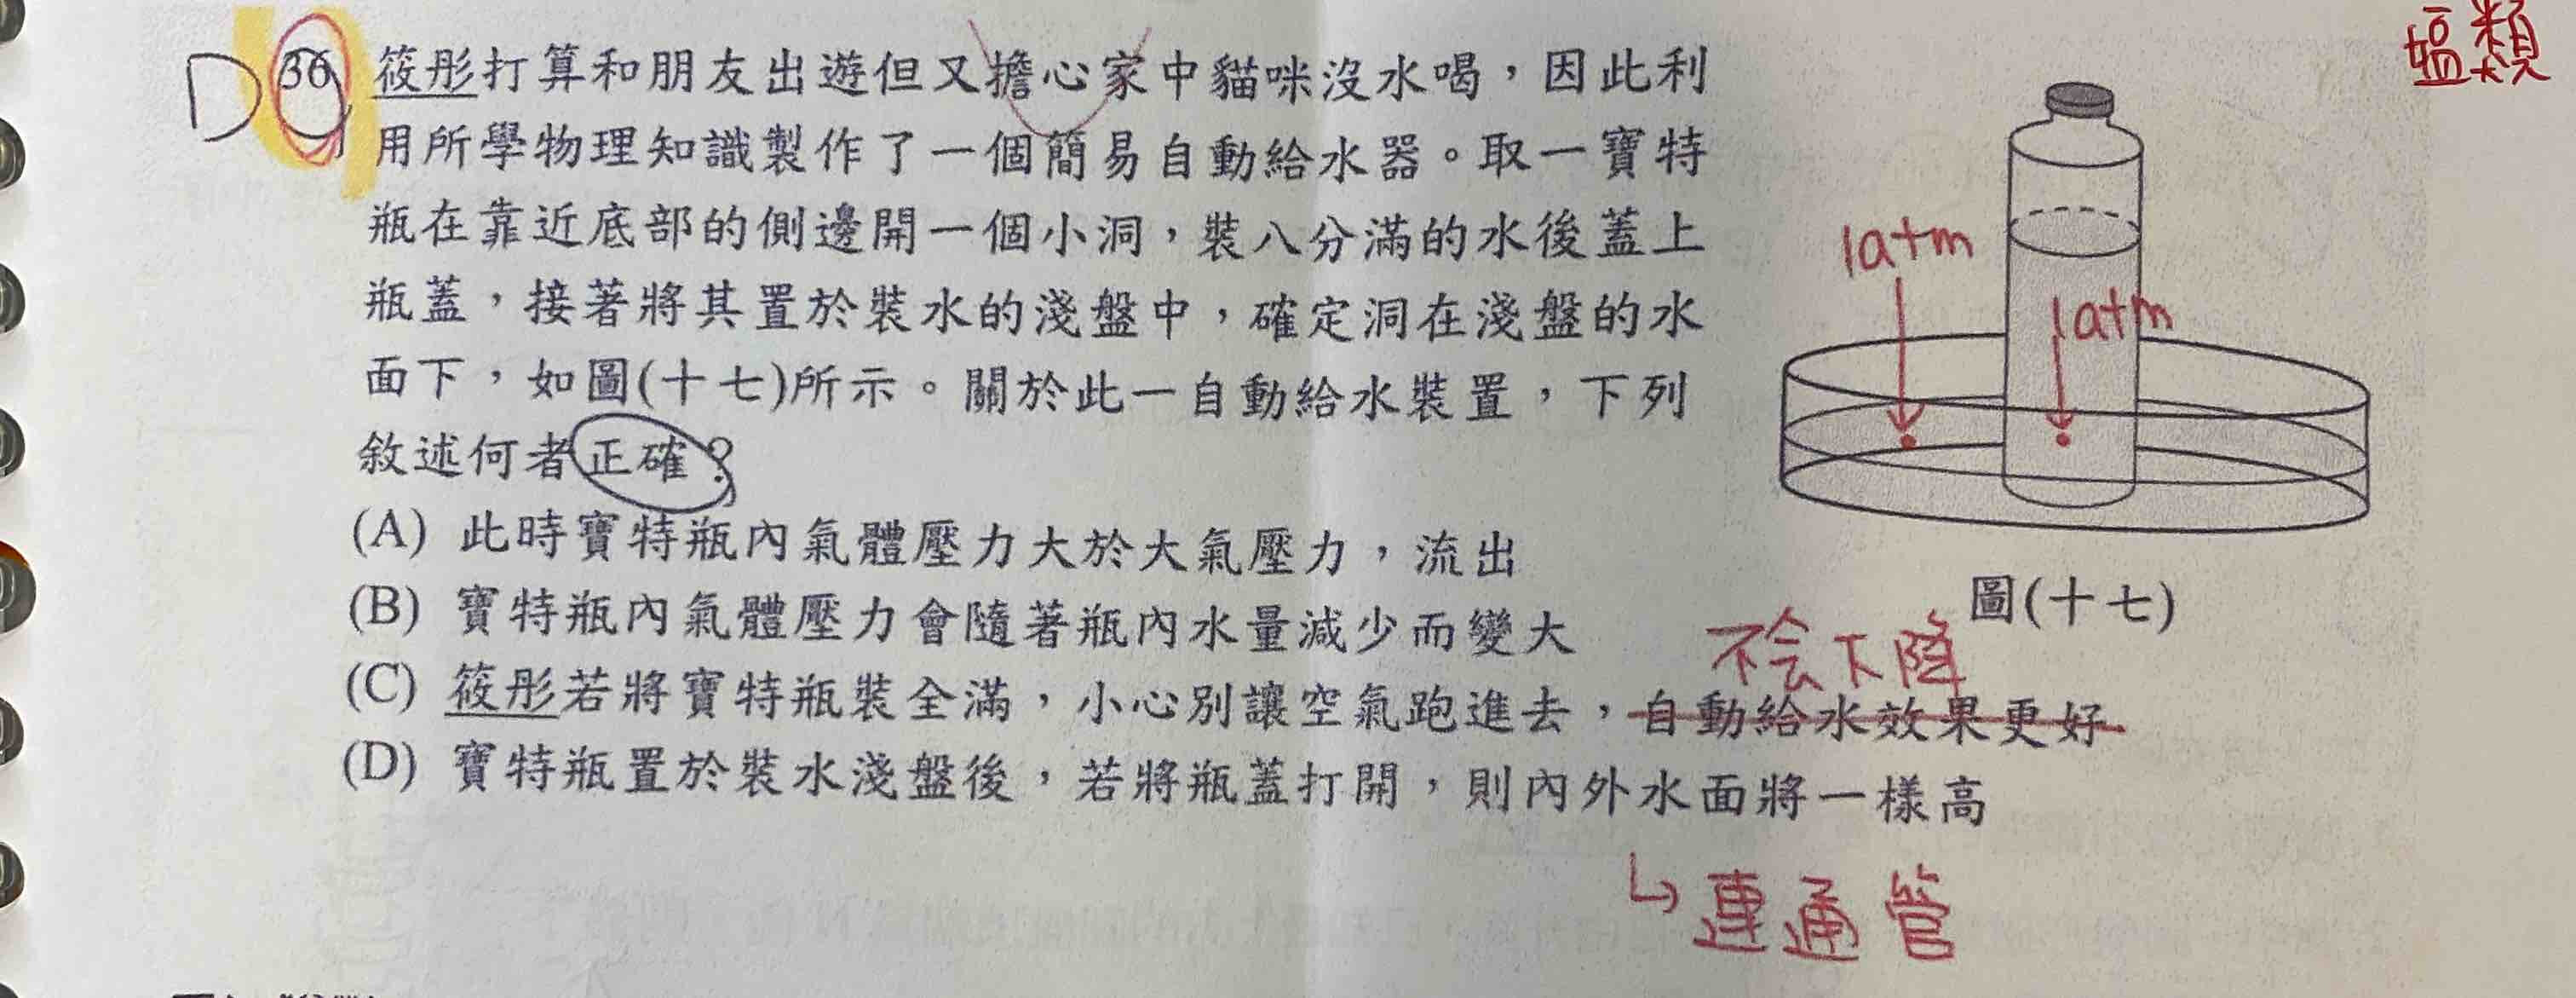 塩類
D 36. 筱彤打算和朋友出遊但又擔心家中貓咪沒水喝，因此利
用所學物理知識製作了一個簡易自動給水器。取一寶特
瓶在靠近底部的側邊開一個小洞，裝八分滿的水後蓋上
瓶蓋，接著將其置於裝水的淺盤中，確定洞在淺盤的水
面下，如圖(十七)所示。關於此一自動給水裝置，下列
敘述何者正確？
(A) 此時寶特瓶內氣體壓力大於大氣壓力，流出
(B) 寶特瓶內氣體壓力會隨著瓶內水量減少而變大
(C) 筱彤若將寶特瓶裝全滿，小心別讓空氣跑進去，自動給水效果更好
不会下降
(D) 寶特瓶置於裝水淺盤後，若將瓶蓋打開，則內外水面將一樣高
連通管
1atm
1atm
圖(十七)